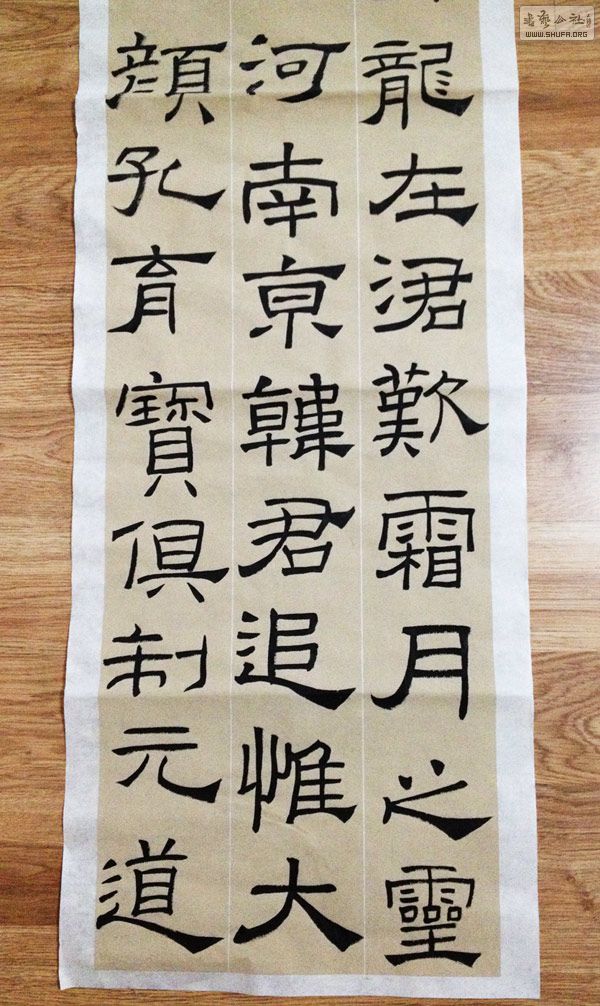 龍在涒歎霜月之靈
河南京韓君追惟大
顏孔育寶俱制元道
WWW.SHUFA.ORG